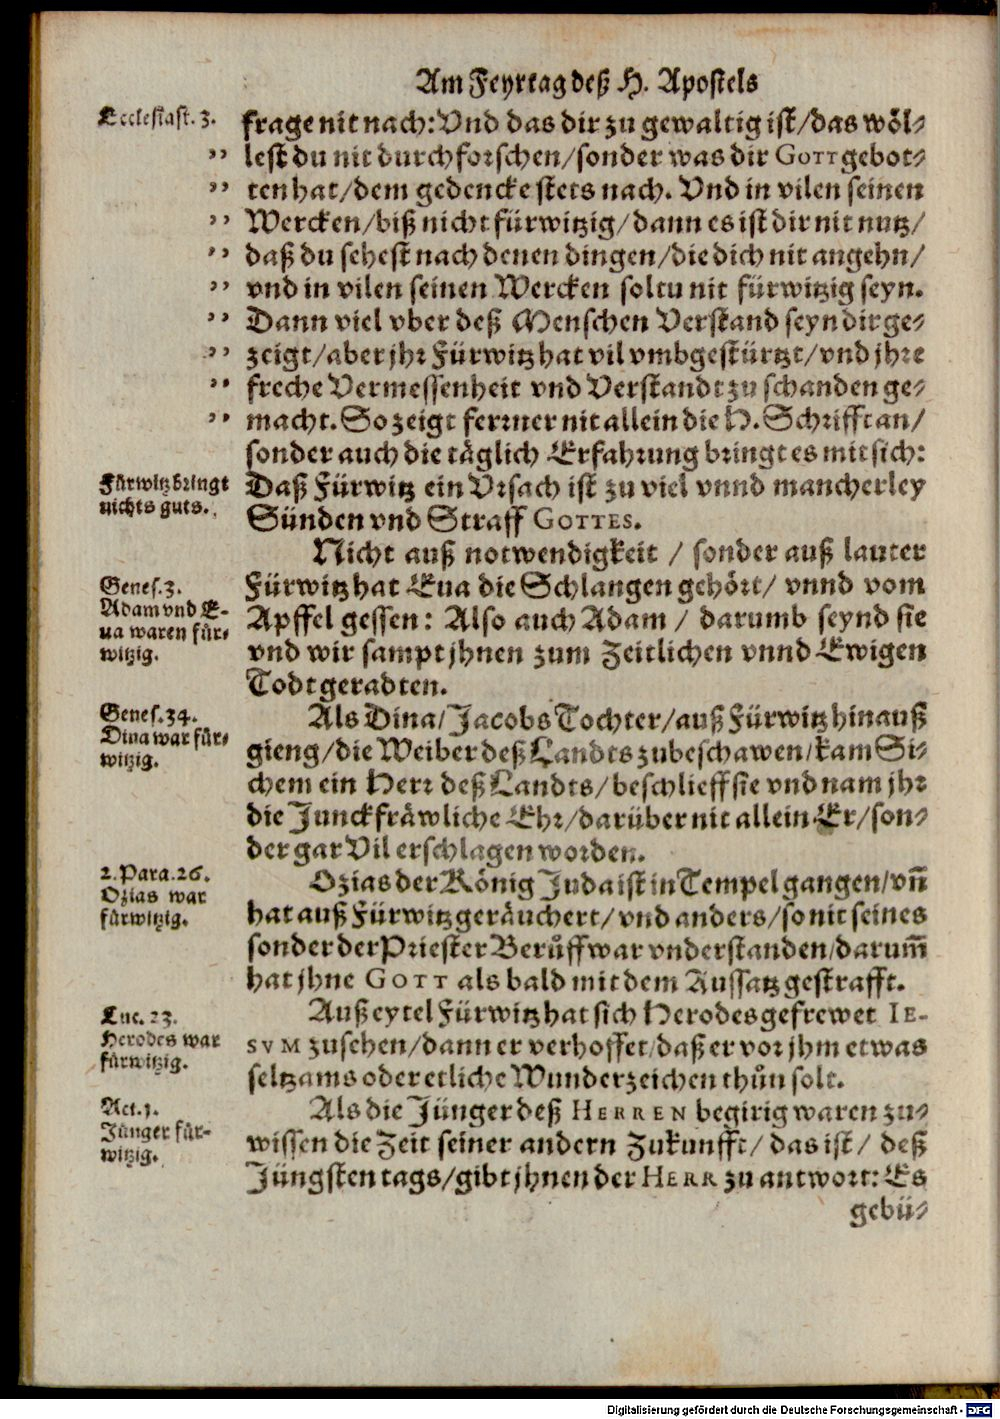 Am Feyrtag deß H. Apostels
Ecclesiast. 3.
frage nit nach: Vnd das dir zu gewaltig ist/das wöl⸗
lest du nit durchforschen/sonder was dir GOTT gebot⸗
ten hat/dem gedencke stets nach. Vnd in vilen seinen
Wercken/biß nicht fürwitzig/dann es ist dir nit nutz/
daß du sehest nach denen dingen/die dich nit angehn/
vnd in vilen seinen Wercken soltu nit fürwitzig seyn.
Dann viel vber deß Menschen Verstand seyn dir ge⸗
zeigt/aber jhr Fürwitz hat vil vmbgestürtzt/vnd jhre
freche Vermessenheit vnd Verstandt zu schanden ge⸗
macht. So zeigt ferrner nit allein die H. Schrifft an/
sonder auch die täglich Erfahrung bringt es mit sich:
Fürwitz bringt
nichts guts.
Daß Fürwitz ein Vrsach ist zu viel vnnd mancherley
Sünden vnd Straff GOTTES.
Nicht auß notwendigkeit / sonder auß lauter
Genes. 3.
Adam vnd E-
ua waren für⸗
witzig.
Fürwitz hat Eua die Schlangen gehört/ vnnd vom
Apffel gessen: Also auch Adam / darumb seynd sie
vnd wir sampt jhnen zum Zeitlichen vnnd Ewigen
Todt geradten.
Genes. 34.
Dina war für⸗
witzig.
Als Dina/Jacobs Tochter/auß Fürwitz hinauß
gieng/die Weiber deß Landts zubeschawen/kam Si⸗
chem ein Herr deß Landts/beschlieff sie vnd nam jhr
die Junckfräwliche Ehr/darüber nit allein Er/son⸗
der gar Vil erschlagen worden.
2. Para. 26.
Ozias war
fürwitzig.
Ozias der König Juda ist in Tempel gangen/vñ
hat auß Fürwitz geräuchert/vnd anders/so nit seines
sonder der Priester Berůff war vnderstanden/darum̃
hat jhne GOTT als bald mit dem Aussatz gestrafft.
Luc. 23.
Herodes war
fürwitzig.
Auß eytel Fürwitz hat sich Herodes gefrewet IE-
SVM zusehen/dann er verhoffet/daß er vor jhm etwas
seltzams oder etliche Wunderzeichen thůn solt.
Act. 1.
Jünger für-
witzig.
Als die Jünger deß HERREN begirig waren zu⸗
wissen die Zeit seiner andern Zukunfft/ das ist/ deß
Jüngsten tags/gibt jhnen der HERR zu antwort: Es
gebü⸗
Digitalisierung gefördert durch die Deutsche Forschungsgemeinschaft - DFG